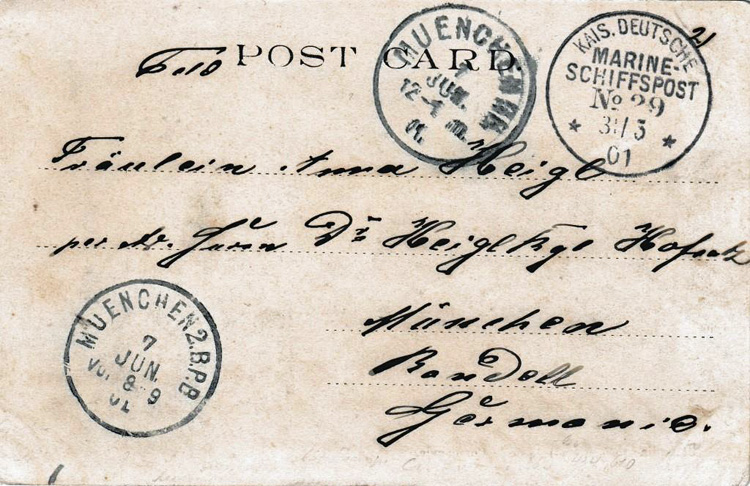 POST CARD
MUENCHEN
7
JUN.
12-1
KAIS. DEUTSCHE
MARINE-
SCHIFFSPOST
No 29
31/5
01
Fräulein Anna Heigl
per Adr. Herrn Dr. Heigl Kgl Hofrat
München
Germania.
MUENCHEN 2.B.P.B
7
JUN.
Vor 8-9
01